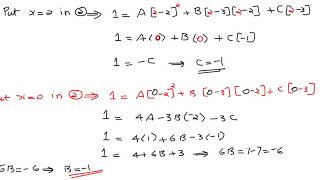 Put x=2 in ② ⇒ 1 = A[2-2]² + B[2-3][2-2] + C[2-3]
1 = A(0) + B(0) + C[-1]
1 = -C ⇒ C=-1
ut x=0 in ② ⇒ 1 = A[0-2]² + B[0-3][0-2] + C[0-3]
1 = 4A-3B(-2)-3C
1 = 4(1)+6B-3(-1)
1 = 4+6B+3 ⇒ 6B=1-7=-6
6B=-6 ⇒ B=-1